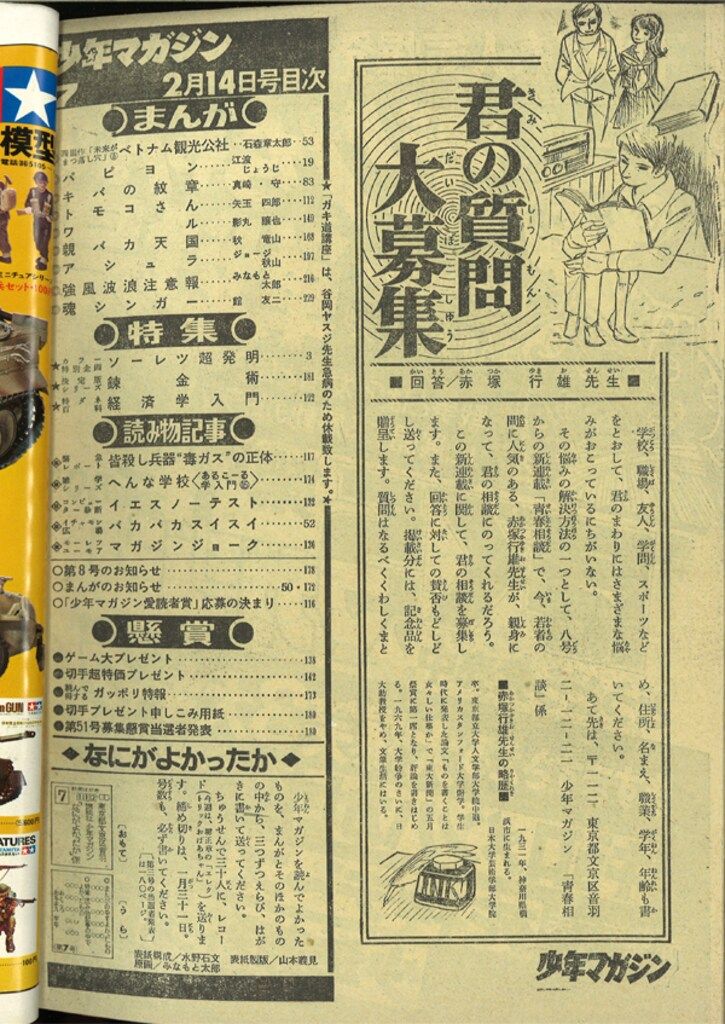 少年マガジン
7
2月14日号目次
まんが
ベトナム観光公社…石森章太郎…53
パピヨン…江波じょうじ…19
キバの紋章…真崎・守…83
トモコさん…矢玉四郎…112
ワル…影丸穣也…149
親バカ天国…秋竜山…168
アシュラ…ジョージ秋山
強風波浪注意報…みなもと太郎…216
魂シンガー…館友二…229
★「ガキ道講座」は、谷岡ヤスジ先生急病のため休載致します。★
特集
ソーレツ超発明…3
錬金術…181
経済学入門…122
読み物記事
皆殺し兵器“毒ガス”の正体…117
へんな学校〈あるこーる学入門
イエスノーテスト…132
バカバカスイスイ…52
マガジンジョーク…130
○第8号のお知らせ…178
○まんがのお知らせ…50・172
○「少年マガジン愛読者賞」応募の決まり…116
懸賞
●ゲーム大プレゼント…138
●切手超特価プレゼント…142
ガッポリ特報…173
●切手プレゼント申しこみ用紙…180
●第51号募集懸賞当選者発表…180
◆なにがよかったか◆
少年マガジンを読んでよかった
ものを、まんがとそのほかのもの
の中から、三つずつえらび、はが
きに書いて送ってください。
ちゅうせんで三十人に、レコー
を送りま
す。締め切りは、一月三十一日。
号数も、必ず書いてください。
〔おもて〕
〔うら〕
7
表紙構成/水野石文
原画/みなもと太郎
表紙製版/山本義見
君の質問
大募集
■回答/赤塚行雄先生■
学校、職場、友人、学問、スポーツなど
をとおして、君のまわりにはさまざまな悩
みがおこっているにちがいない。
その悩みの解決方法の一つとして、八号
からの新連載「青春相談」で、今、若者の
間に人気のある、赤塚行雄先生が、親身に
なって、君の相談にのってくれるだろう。
この新連載に関して、君の相談を募集し
ます。また、回答に対しての賛否もどしど
し送ってください。掲載分には、記念品を
贈呈します。質問はなるべくくわしくまと
め、住所、名まえ、職業、学年、年齢も書
いてください。
あて先は、〒一一二 東京都文京区音羽
二‐一二‐二一 少年マガジン 「青春相
談」係
■赤塚行雄先生の略歴■
一九三一年、神奈川県横
浜市に生まれる。
日本大学芸術学部大学院
卒。東京都立大学人文学部大学院中退。
アメリカスタンフォード大学留学。学生
時代に発表した論文「ものを書くことは
女々しい仕事か」で「東大新聞」の五月
祭賞に第一席となり、評論を書きはじめ
る。一九六九年、大学紛争のさいに、日
大助教授をやめ、文筆生活にはいる。
INK
少年マガジン
模型